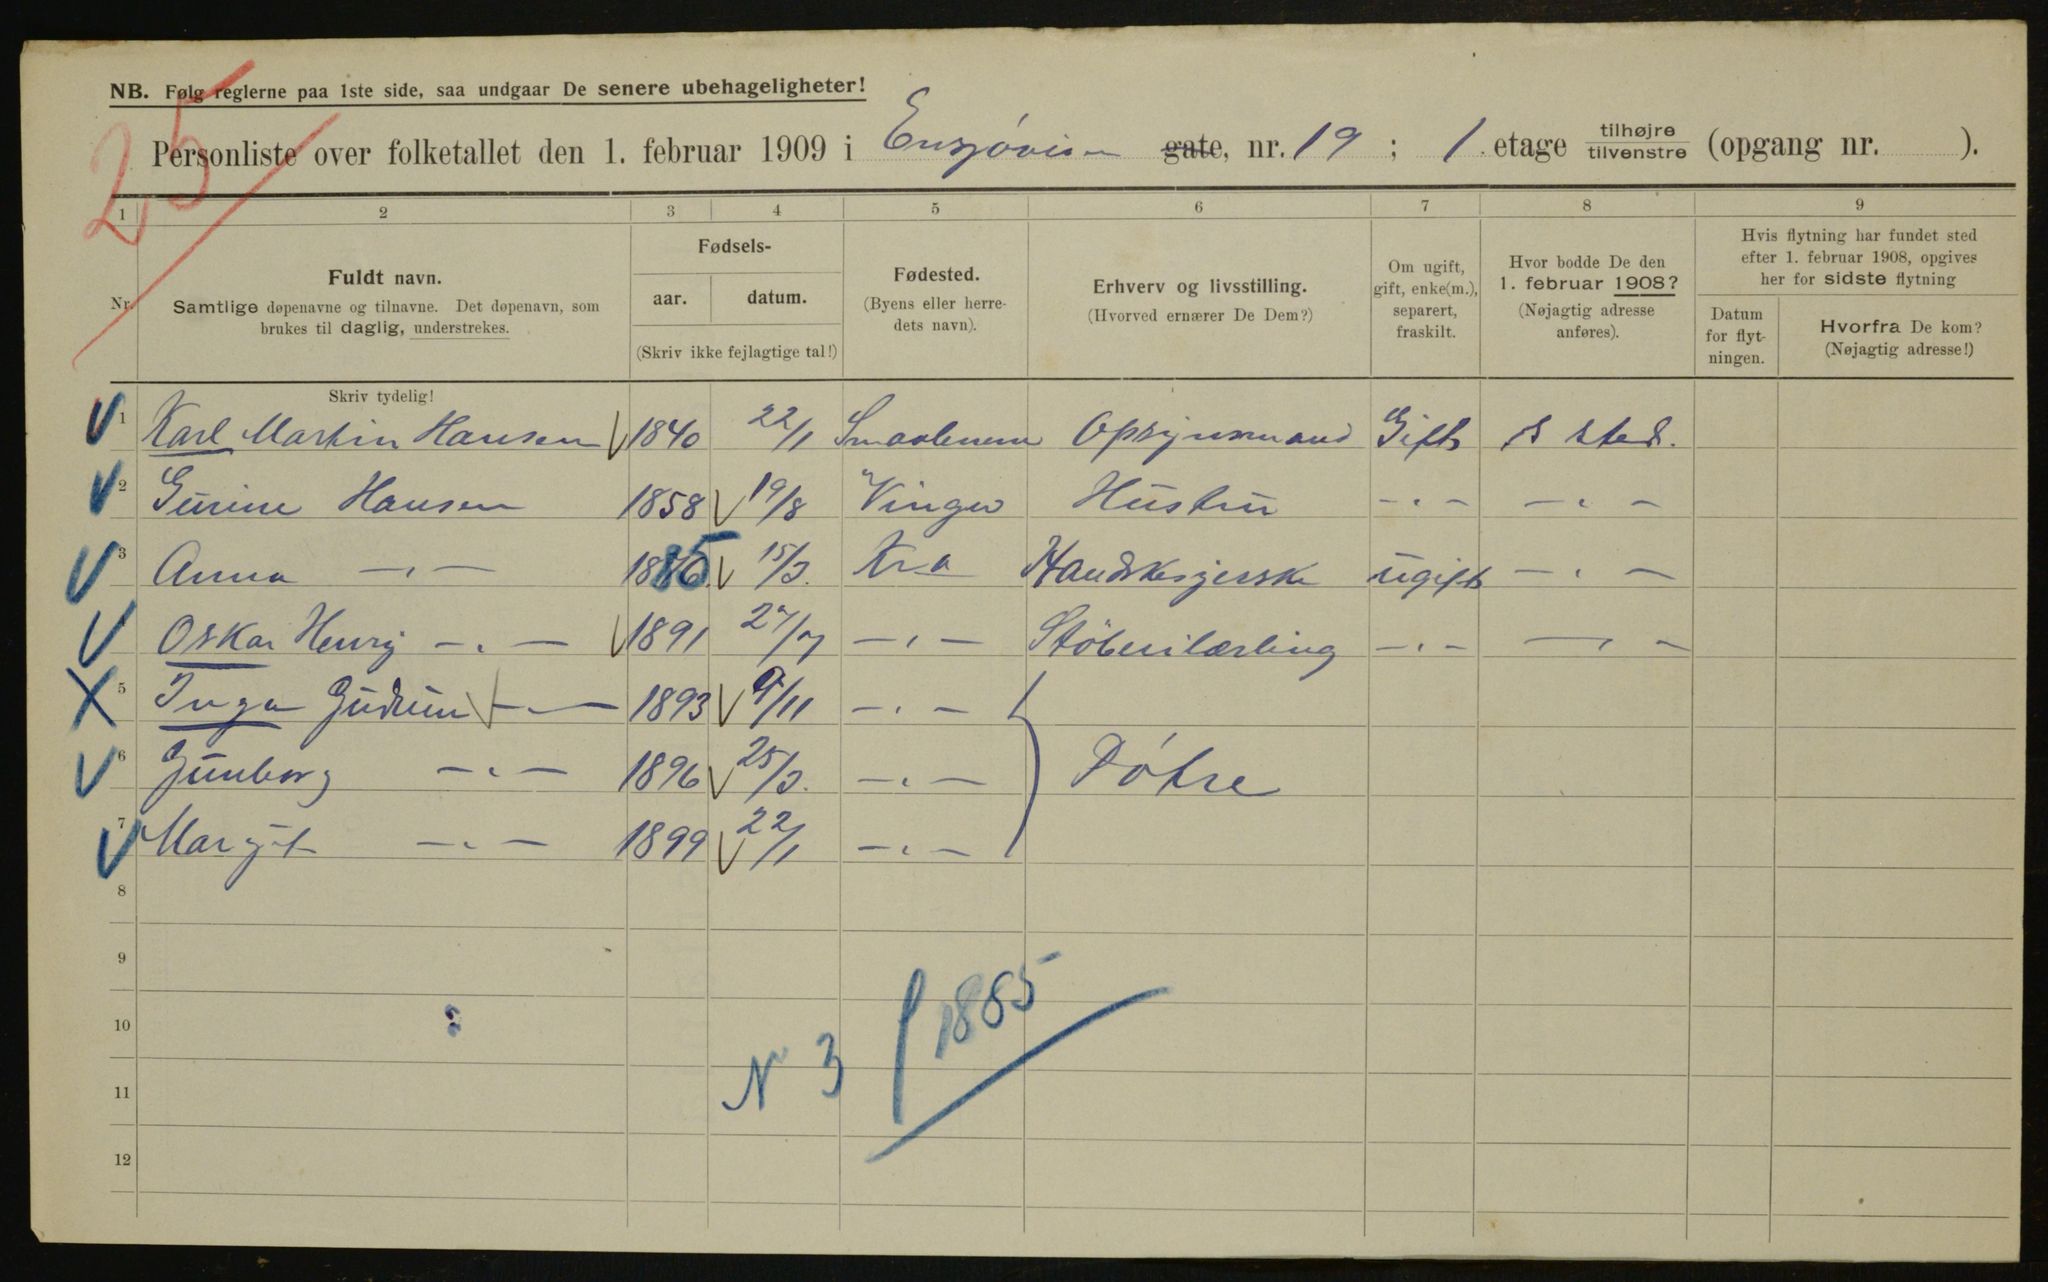 NB. Følg reglerne paa 1ste side, saa undgaar De senere ubehageligheter!
25
Personliste over folketallet den 1. februar 1909 i Ensjøveien gate, nr. 19; 1 etage tilhøjre tilvenstre (opgang nr. ).
1 2 3 4 5 6 7 8 9
Nr.
Fuldt navn.
Samtlige døpenavne og tilnavne. Det døpenavn, som
brukes til daglig, understrekes.
Fødsels-
aar. datum.
(Skriv ikke fejlagtige tal!)
Fødested.
(Byens eller herre-
dets navn).
Erhverv og livsstilling.
(Hvorved ernærer De Dem?)
Om ugift,
gift, enke(m.),
separert,
fraskilt.
Hvor bodde De den
1. februar 1908?
(Nøjagtig adresse
anføres).
Hvis flytning har fundet sted
efter 1. februar 1908, opgives
her for sidste flytning
Datum
for flyt-
ningen.
Hvorfra De kom?
(Nøjagtig adresse!)
Skriv tydelig!
1 Karl Martin Hansen 1840 22/1 Smaalenene Opsynsmand Gift s sted.
2 Gurine Hansen 1858 19/8 Vinger Hustru —"— —"—
3 Anna —"— 1885 15/3. Kra Handskesyerske ugift —"—
4 Oskar Henry —"— 1891 27/7 —"— Støberilærling —"— —"—
5 Inga Gudrun —"— 1893 9/11 —"—
6 Gunborg —"— 1896 25/3. —"— Døtre
7 Margit —"— 1899 22/1 —"—
8
9
10
11
12
N 3 / 1885